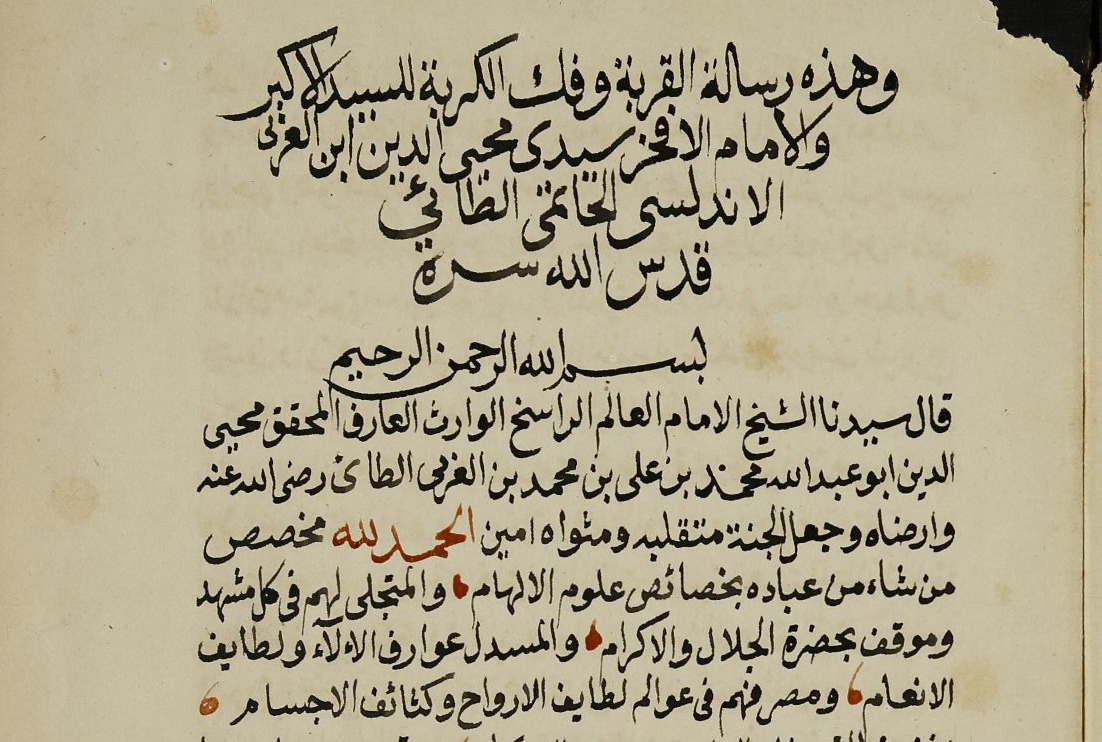 وهذه رسالة القربة وفك الكربة للسيد الاكبر
والامام الافخر سيدى محيى الدين ابن العربى
الاندلسى الحاتمى الطائي
قدس الله سرة
بسم الله الرحمن الرحيم
قال سيدنا الشيخ الامام العالم الراسخ الوارث العارف المحقق محيى
الدين ابو عبدالله محمد بن على بن محمد بن العربى الطائ رضى الله عنه
وارضاه وجعل الجنة متقلبه ومثواه امين الحمد لله مخصص
من شاء من عباده بخصائص علوم الالهام والمتجلى لهم فى كل مشهد
وموقف بحضرة الجلال والاكرام والمسدل عوارف الالآء ولطايف
الانعام ومصرفهم فى عوالم لطايف الارواح وكثائف الاجسام